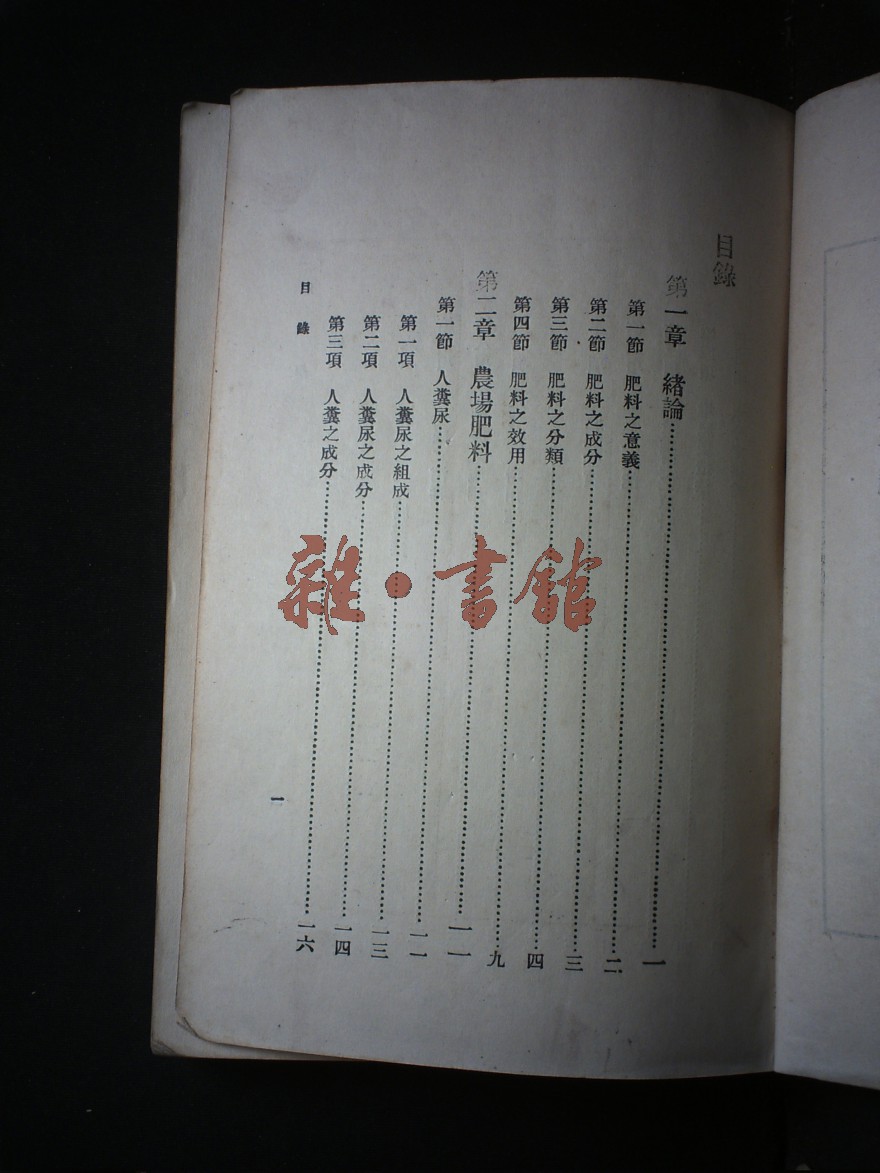 目錄
第一章 緒論……一
第一節 肥料之意義……二
第二節 肥料之成分……三
第三節 肥料之分類……四
第四節 肥料之效用……九
第二章 農場肥料……一一
第一節 人糞尿……一一
第一項 人糞尿之組成……一三
第二項 人糞尿之成分……一四
第三項 人糞之成分……一六
目錄
一
雜·書館